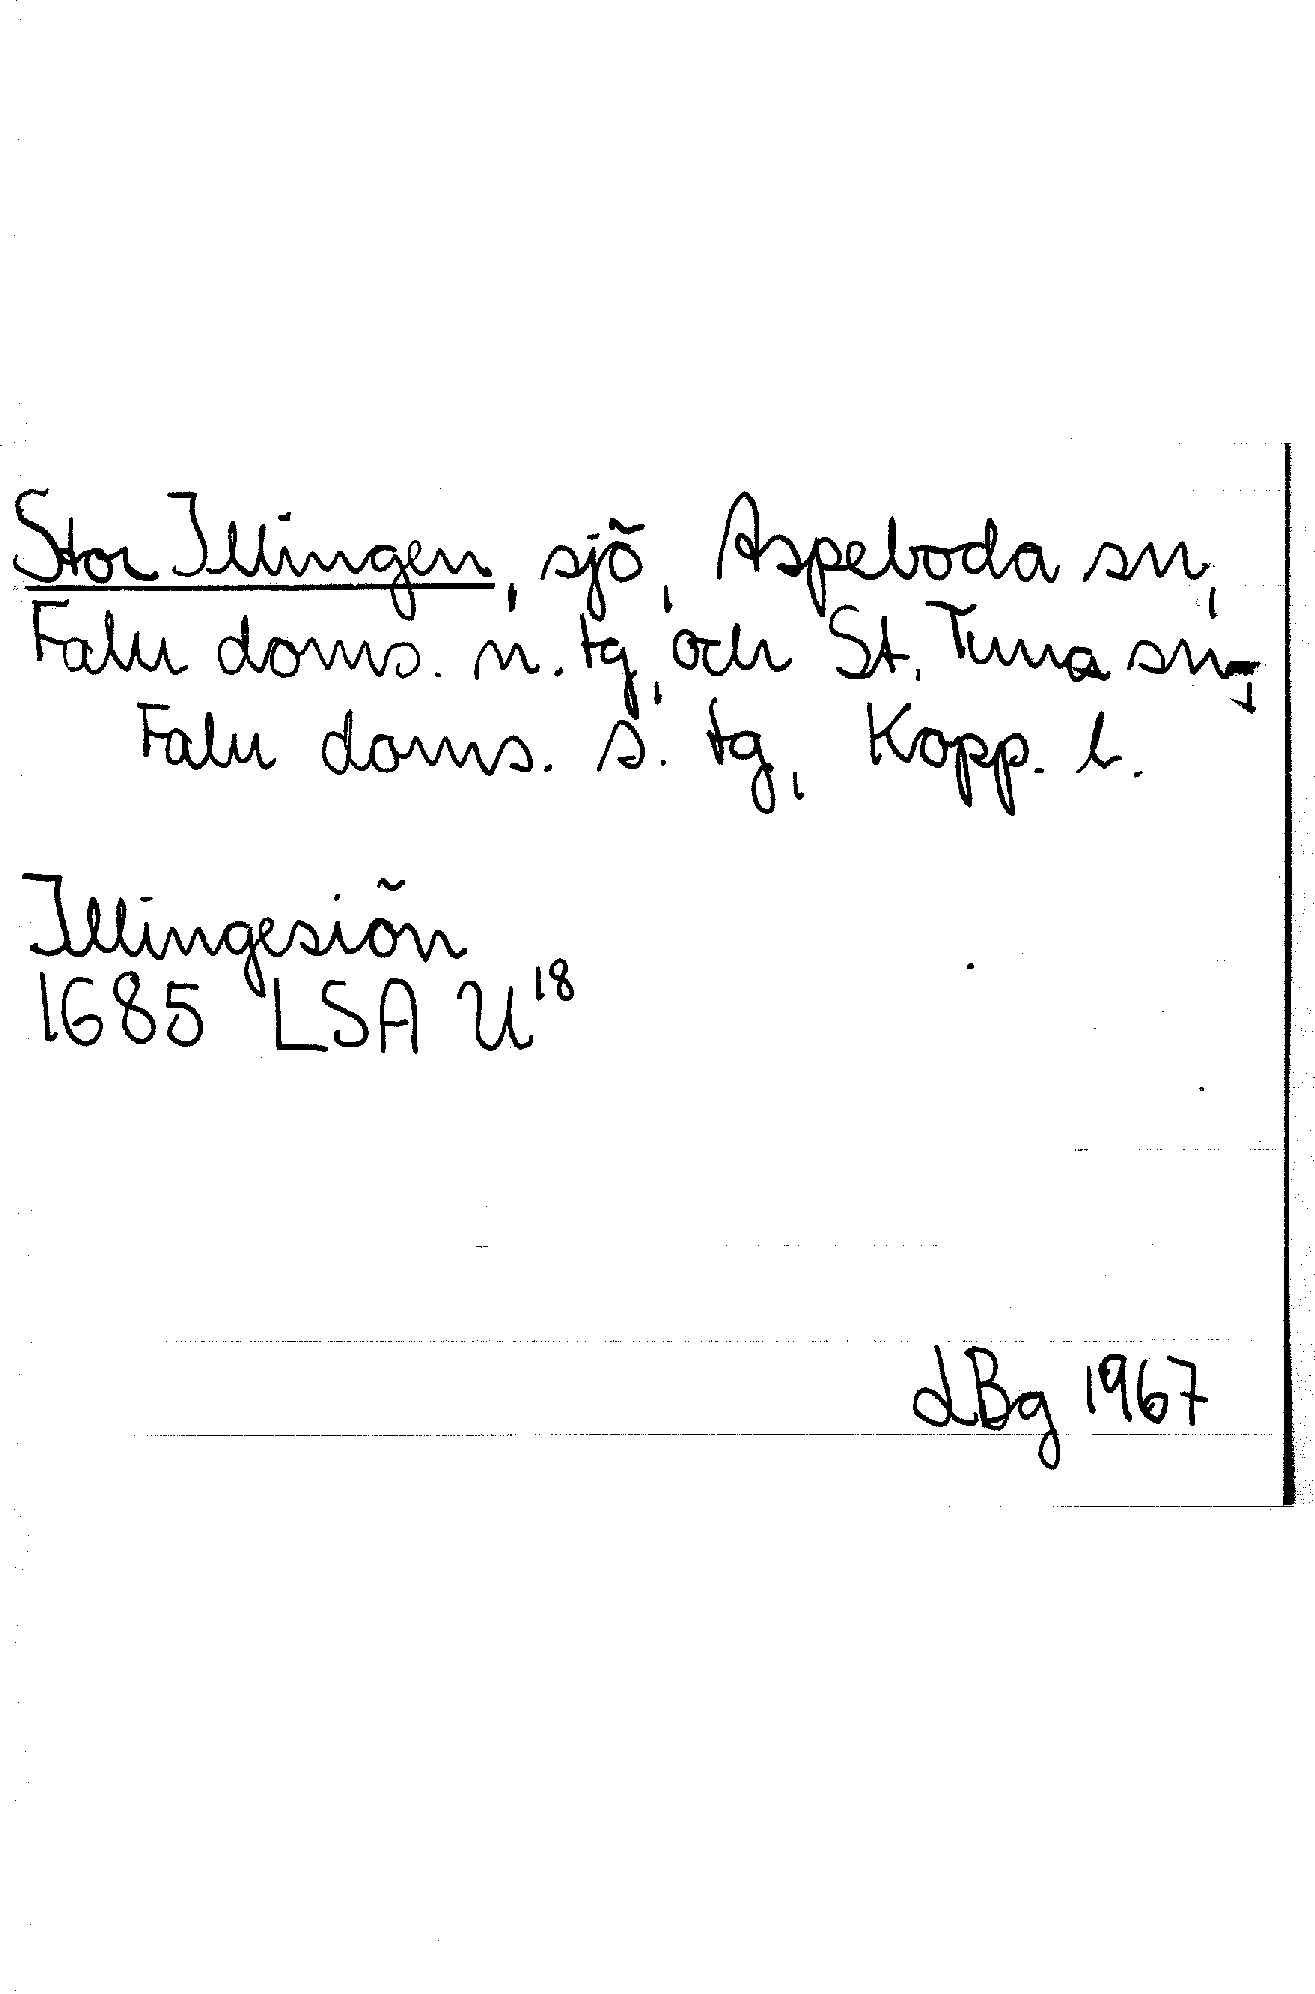 Stor Illingen, sjö, Aspeboda sn,
Falu doms. n. tg, och St. Tuna sn,
Falu doms. s. tg, Kopp. l.
Illingesiön
1685 LSA U18
LBg 1967